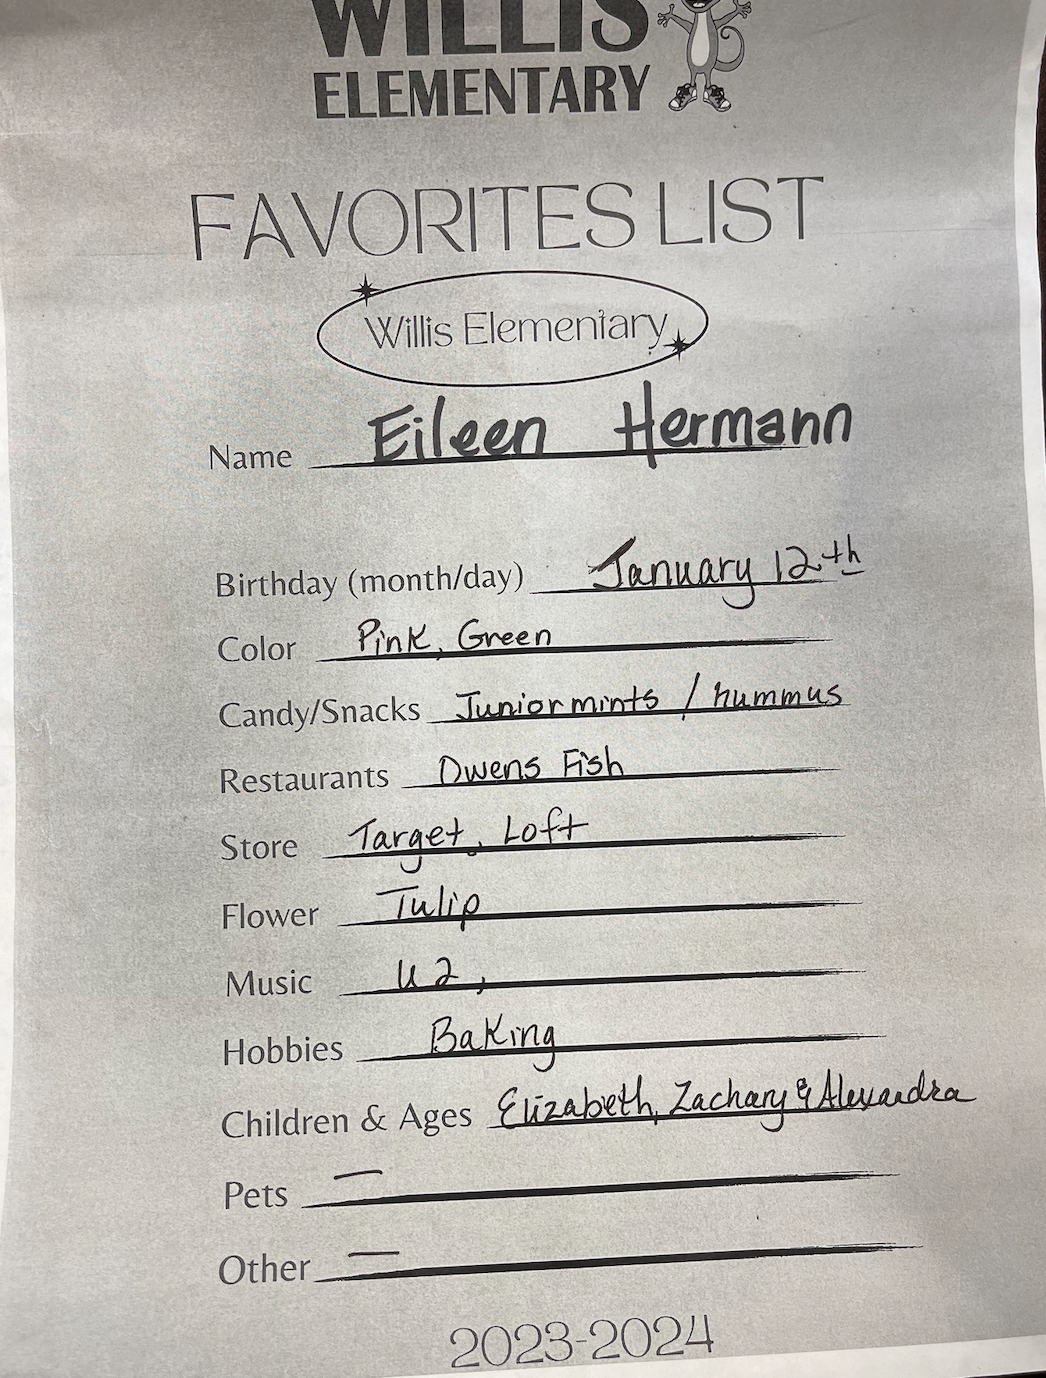 WILLIS
ELEMENTARY
FAVORITES LIST
Willis Elementary
Name Eileen Hermann
Birthday (month/day) January 12th
Color Pink, Green
Candy/Snacks Junior mints / hummus
Restaurants Owens Fish
Store Target, Loft
Flower Tulip
Music U2,
Hobbies Baking
Children & Ages Elizabeth, Zachary & Alexandra
Pets —
Other —
2023-2024